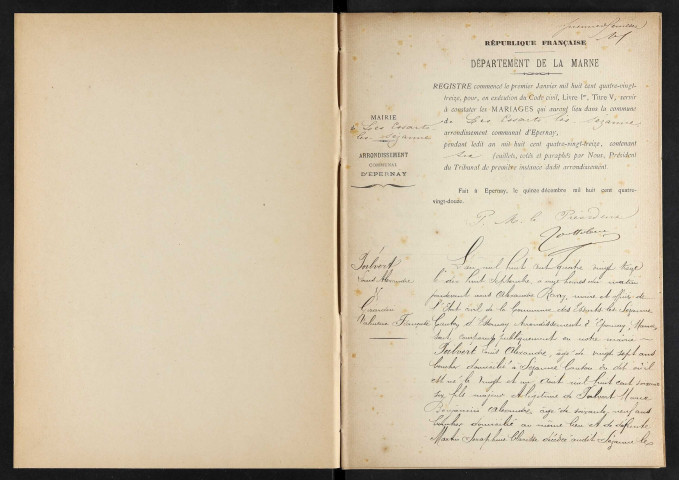 RÉPUBLIQUE FRANÇAISE
DÉPARTEMENT DE LA MARNE
REGISTRE commencé le premier Janvier mil huit cent quatre-vingt-
treize, pour, en exécution du Code civil, Livre Ier, Titre V, servir
à constater les MARIAGES qui auront lieu dans la commune
de Les Essarts les Sézanne
arrondissement communal d'Epernay,
pendant ledit an mil huit cent quatre-vingt-treize, contenant
six feuillets, cotés et paraphés par Nous, Président
du Tribunal de première instance dudit arrondissement.
Fait à Epernay, le quinze décembre mil huit cent quatre-
vingt-douze.
P. le Président
MAIRIE
Les Essarts
les Sézanne
ARRONDISSEMENT
COMMUNAL
D'ÉPERNAY
Louis Alexandre
&
Françoise
L'an mil huit cent quatre vingt treize
le huit Septembre à onze heures du matin
pardevant nous Alexandre maire et officier de
l'Etat civil de la Commune des Essarts les Sézanne
Canton d'Esternay Arrondissement d'Epernay, Marne,
sont comparus publiquement en notre mairie
Louis Alexandre, âgé de vingt sept ans
domicilié à Sézanne Canton du dit où il
est né le vingt et un Août mil huit cent soixante
six fils majeur et légitime de
Alexandre âgé de soixante neuf ans
domicilié au même lieu et de défunte
Martin Séraphine Clarisse décédée audit Sézanne le